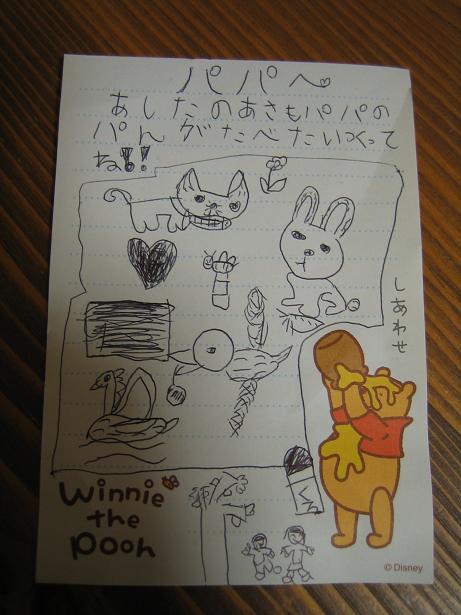 パパへ
あしたのあさもパパの
パんがたべたいつくって
ね!!
しあわせ
Winnie
the
Pooh
© Disney